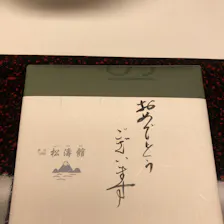 おめでとう
ございます
松濤館